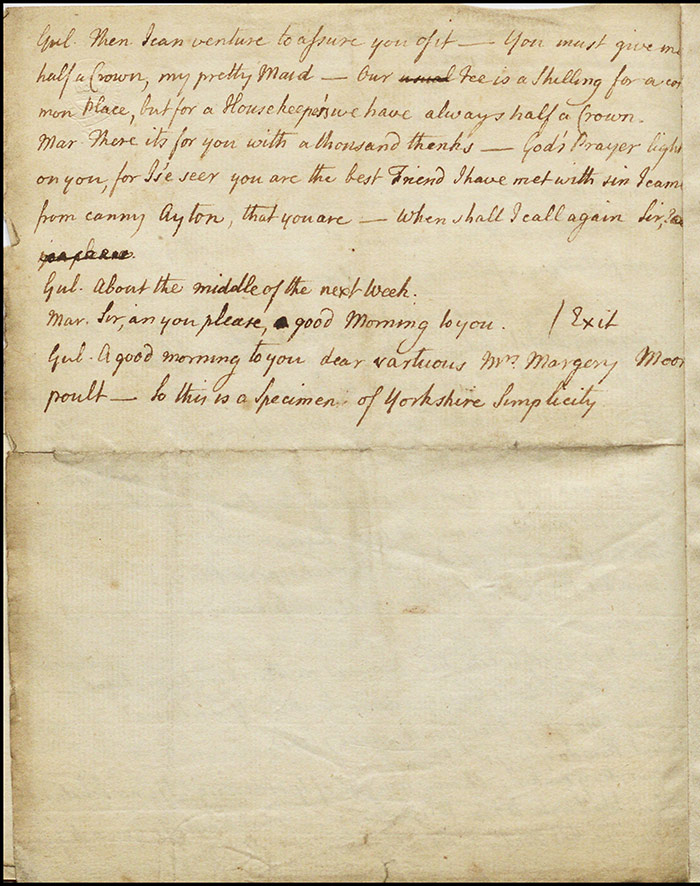 Gul. Then I can venture to assure you of it — You must give me
half a Crown, my pretty Maid — Our usual Fee is a Shilling for a com
mon Place, but for a Housekeeper's we have always half a Crown.
Mar. There its for you with a thousand thenks — God's Prayer light
on you, for I'se seer you are the best Friend I have met with sin I came
from canny Ayton, that you are — When shall I call again Sir,
Gul. About the middle of the next Week.
Mar. Sir, an you please, a good Morning to you. / Exit
Gul. A good morning to you dear vartuous Mrs. Margery Moor
poult — So this is a Specimen of Yorkshire Simplicity